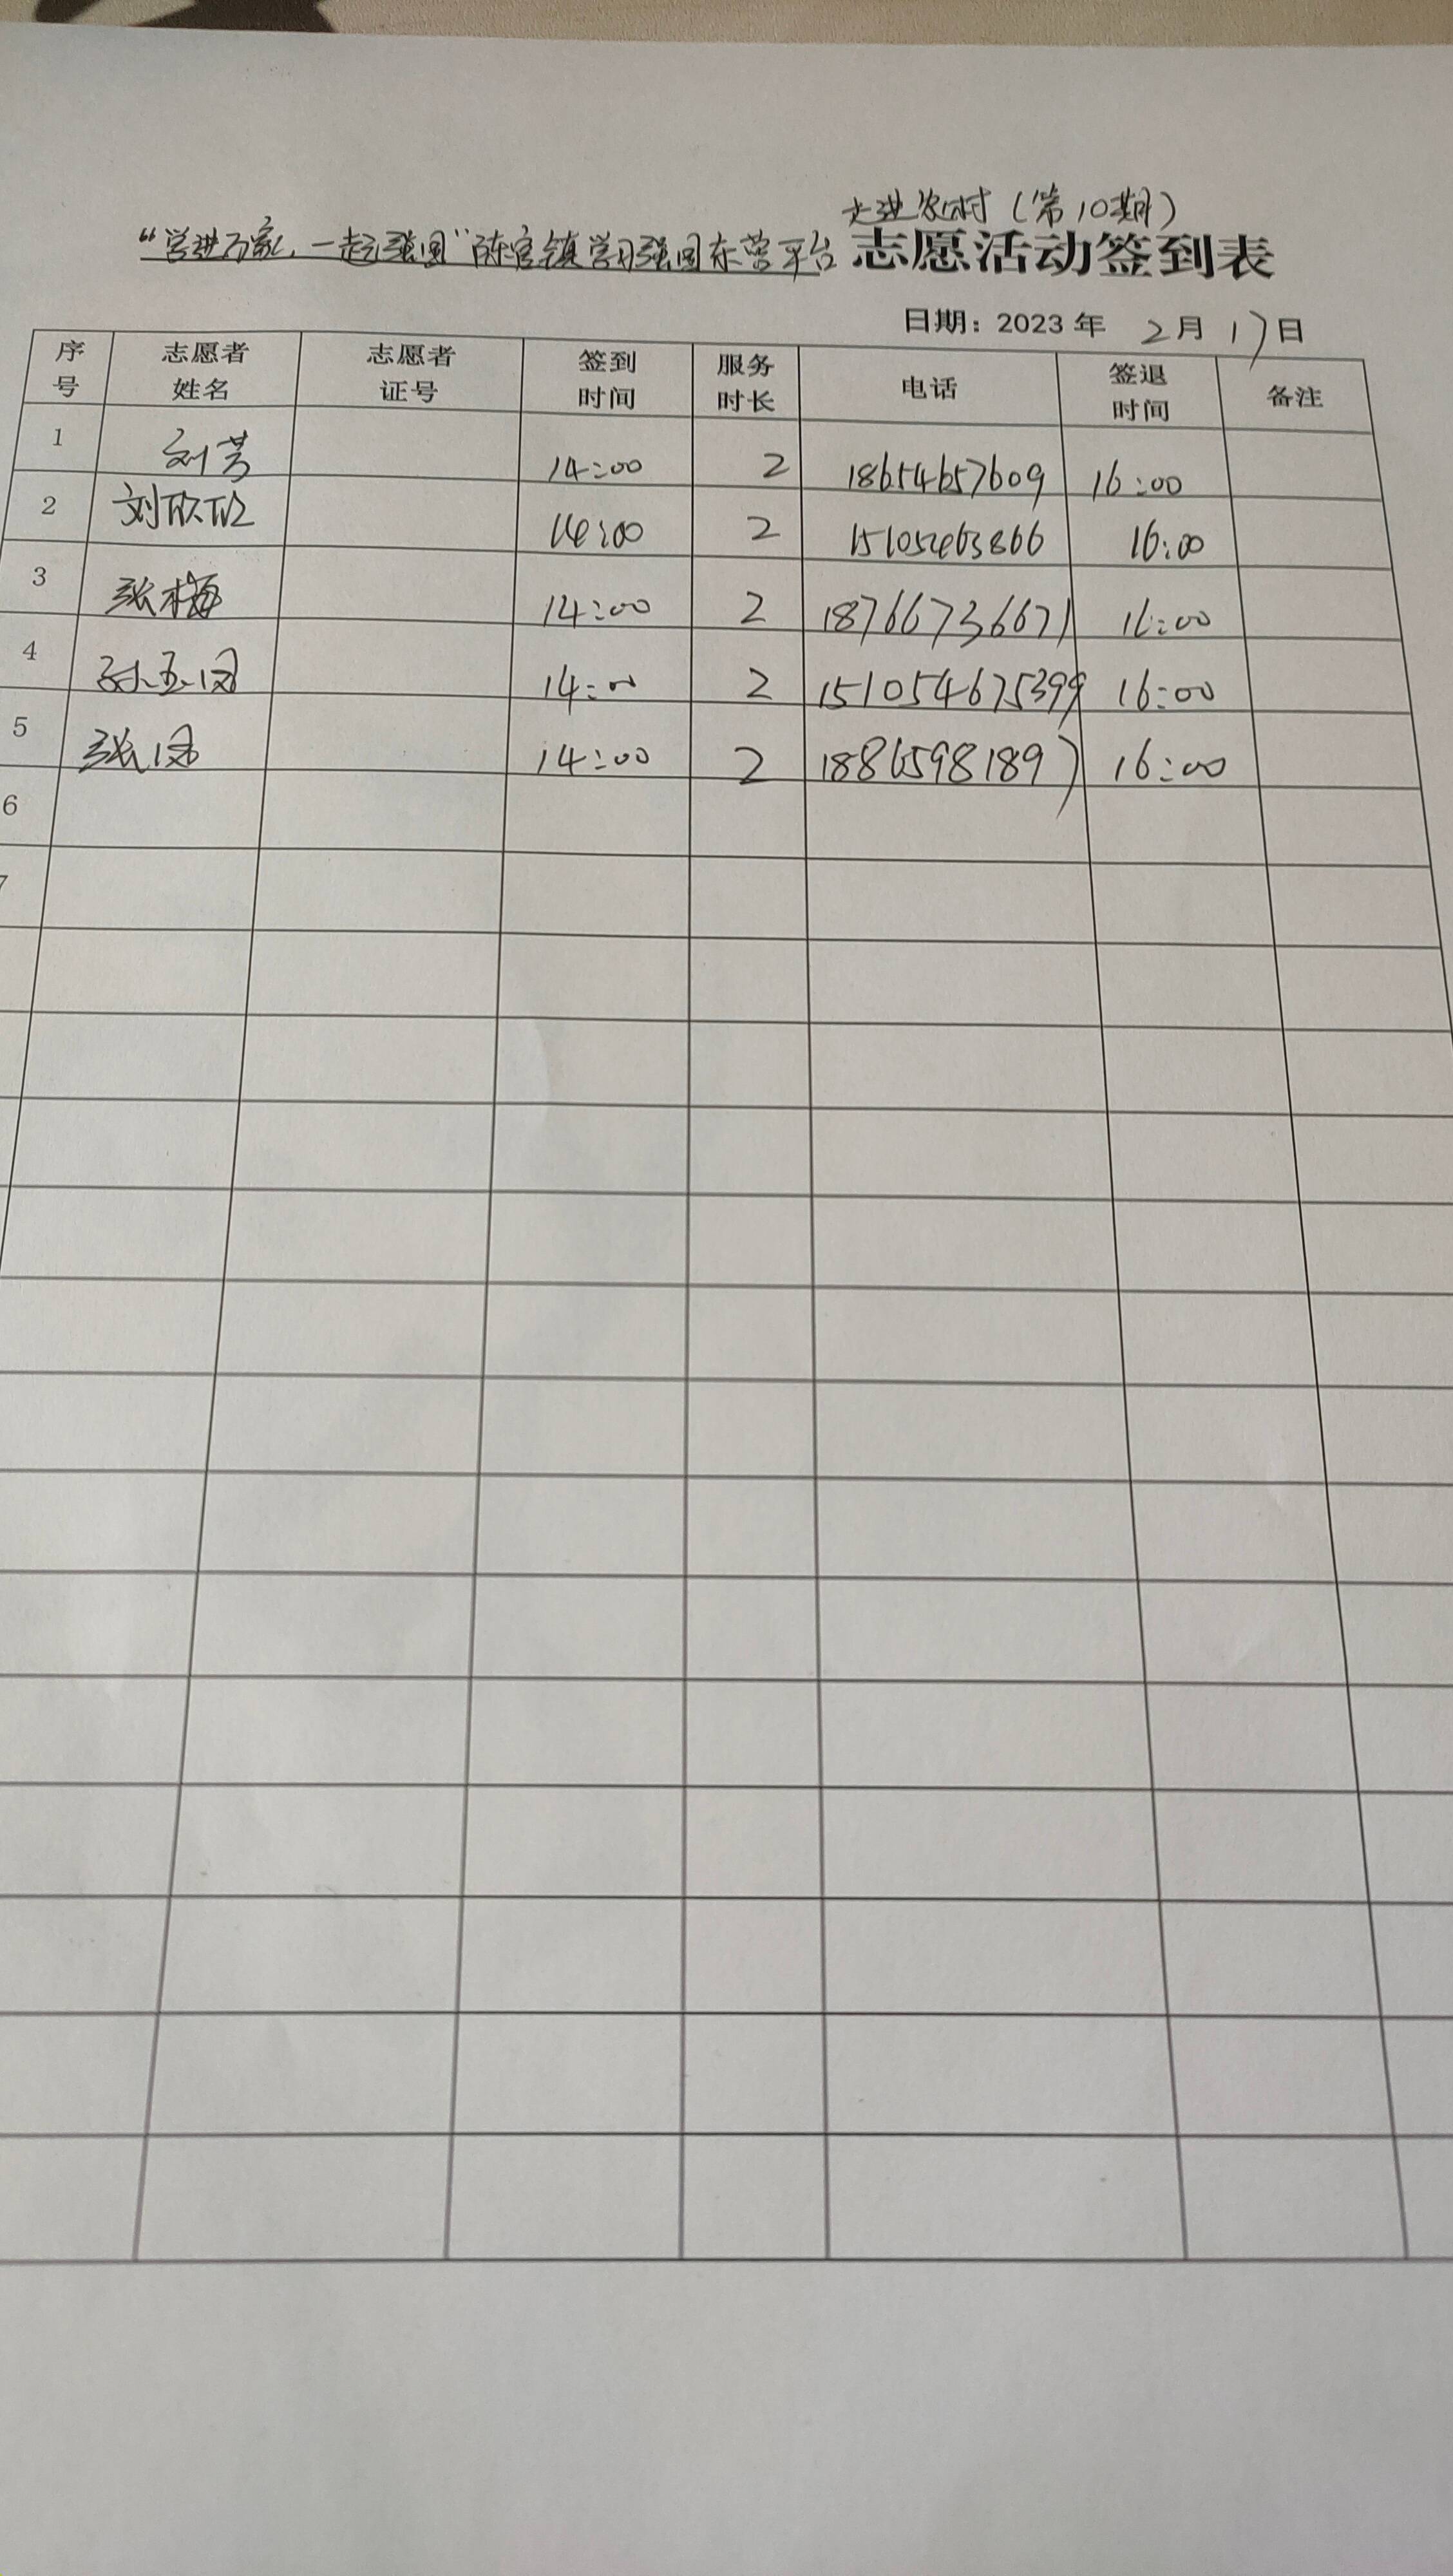 走进农村（第10期）
“学进万家，一起强国”陈官镇学习强国东营平台 志愿活动签到表
日期：2023 年 2 月 17 日
序号 志愿者姓名 志愿者证号 签到时间 服务时长 电话 签退时间 备注
1 刘芳 14:00 2 18654657609 16:00
2 刘欣欣 14:00 2 15105463866 16:00
3 张梅 14:00 2 18766736671 16:00
4 孙玉凤 14:00 2 151054675399 16:00
5 张凤 14:00 2 18865981897 16:00
6
7